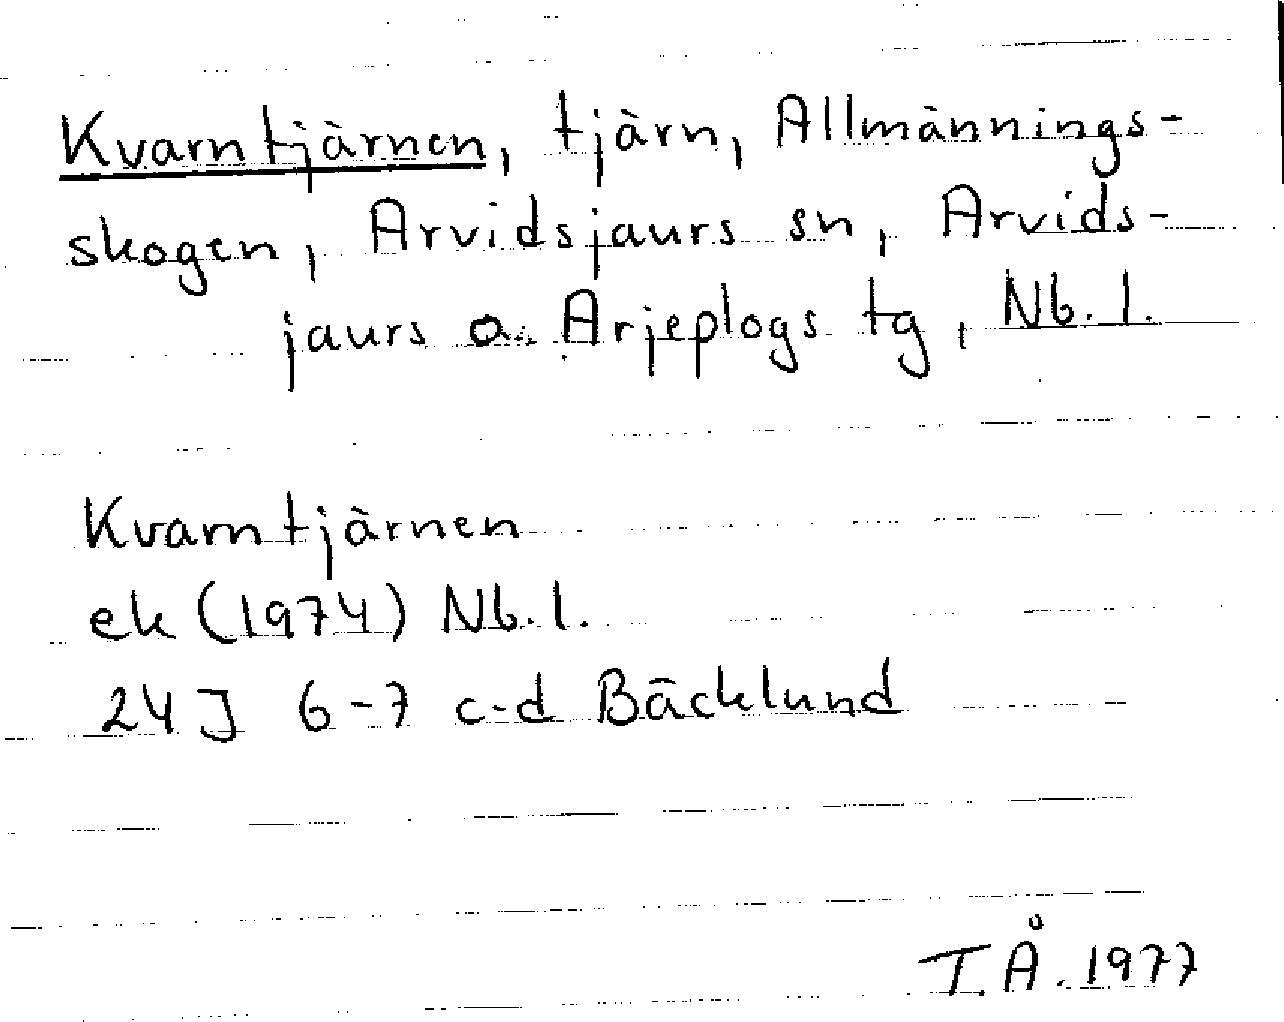 Kvarntjärnen, tjärn, Allmännings-
skogen, Arvidsjaurs sn, Arvids-
jaurs o. Arjeplogs tg, Nb. l.
Kvarntjärnen
ek (1974) Nb. l.
24J 6-7 c-d Bäcklund
T. Å. 1977